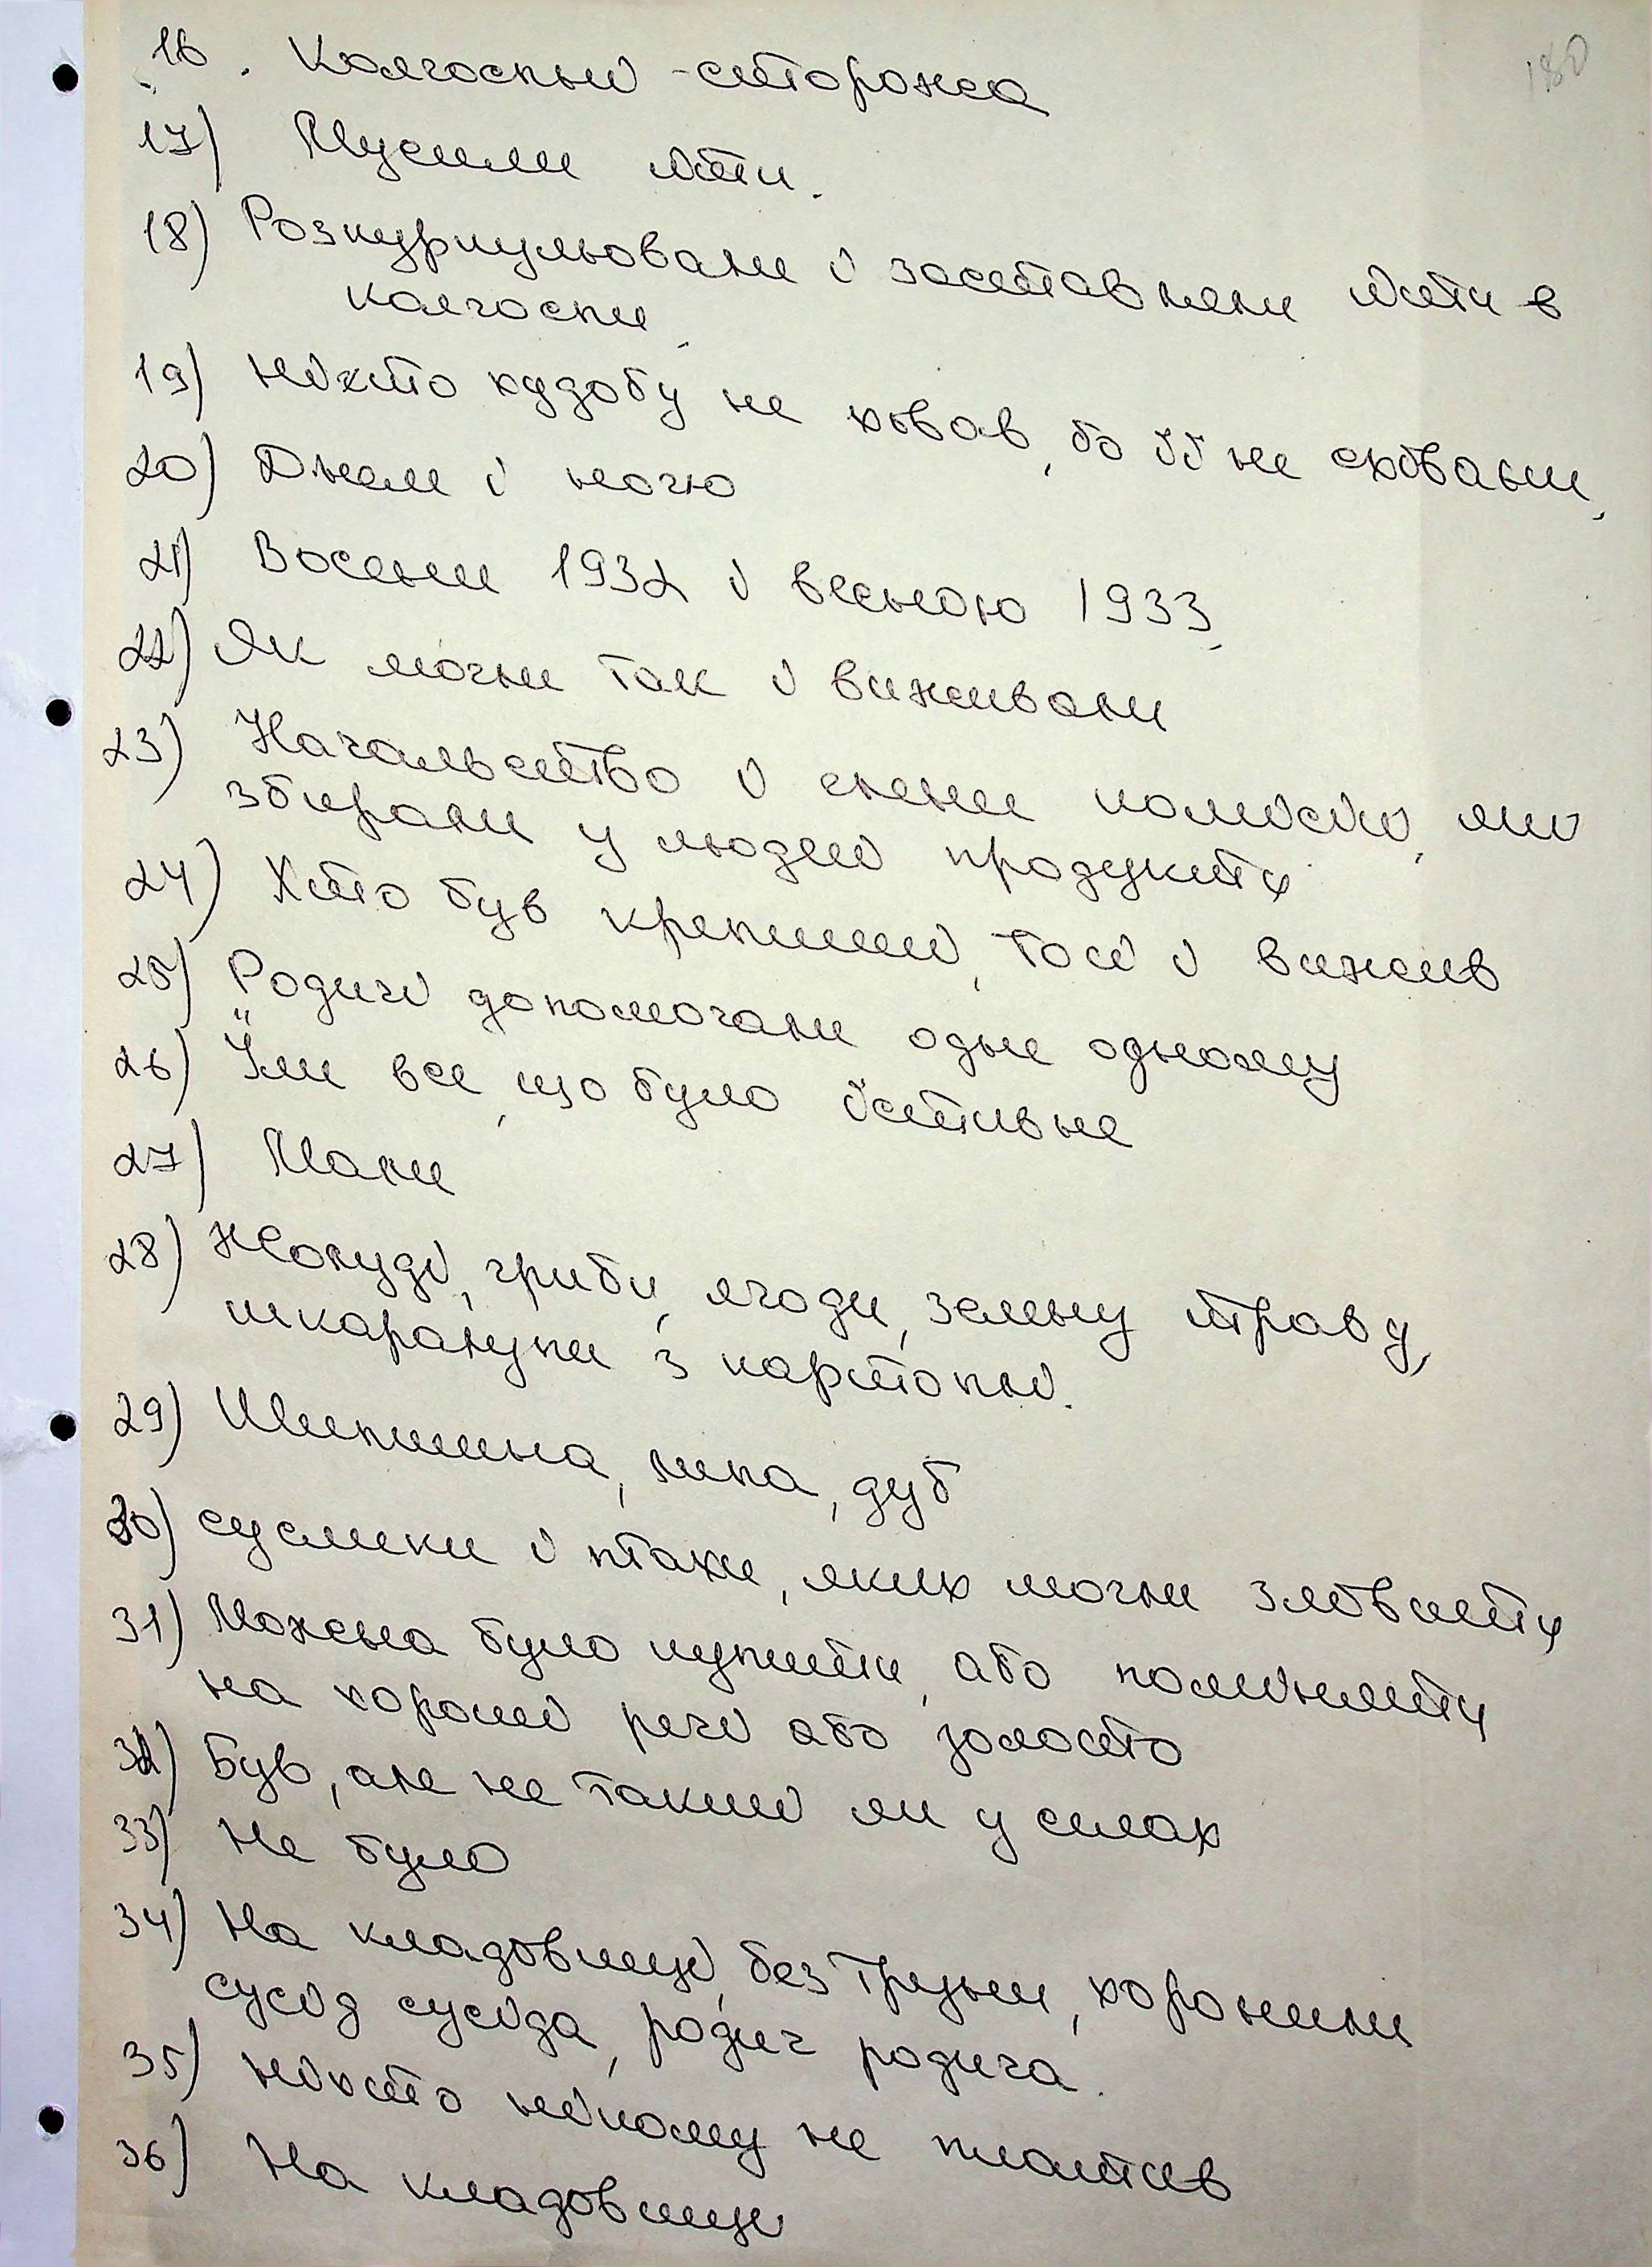 180
16. Колгоспні -сторожа
17) Мусили йти.
18) Розкуркульовали і заставляли йти в
колгоспи.
19) ніхто худобу не ховав, бо її не сховаєш.
20) Днем і ночю
21) Восени 1932 і весною 1933.
22) Як могли так і виживали
23) Начальство і члени комісії, які
збирали у людей продукти
24) Хто був крепший, той і вижив
25) Родичі допомогали одне одному
26) Їли все, що було їстивне
27) Мали
28) Жолуді, гриби, ягоди, зелену траву,
шкаралупи з картоплі.
29) Шипшина, липа, дуб
30) суслики і птахи, яких могли зловити
31) Можна було купити, або поміняти
на хороші речі або золото
32) Був, але не такий як у селах
33) Не було
34) На кладовищі, без труни, хоронили
сусід сусіда, родич родича.
35) ніхто нікому не платив
36) На кладовищі